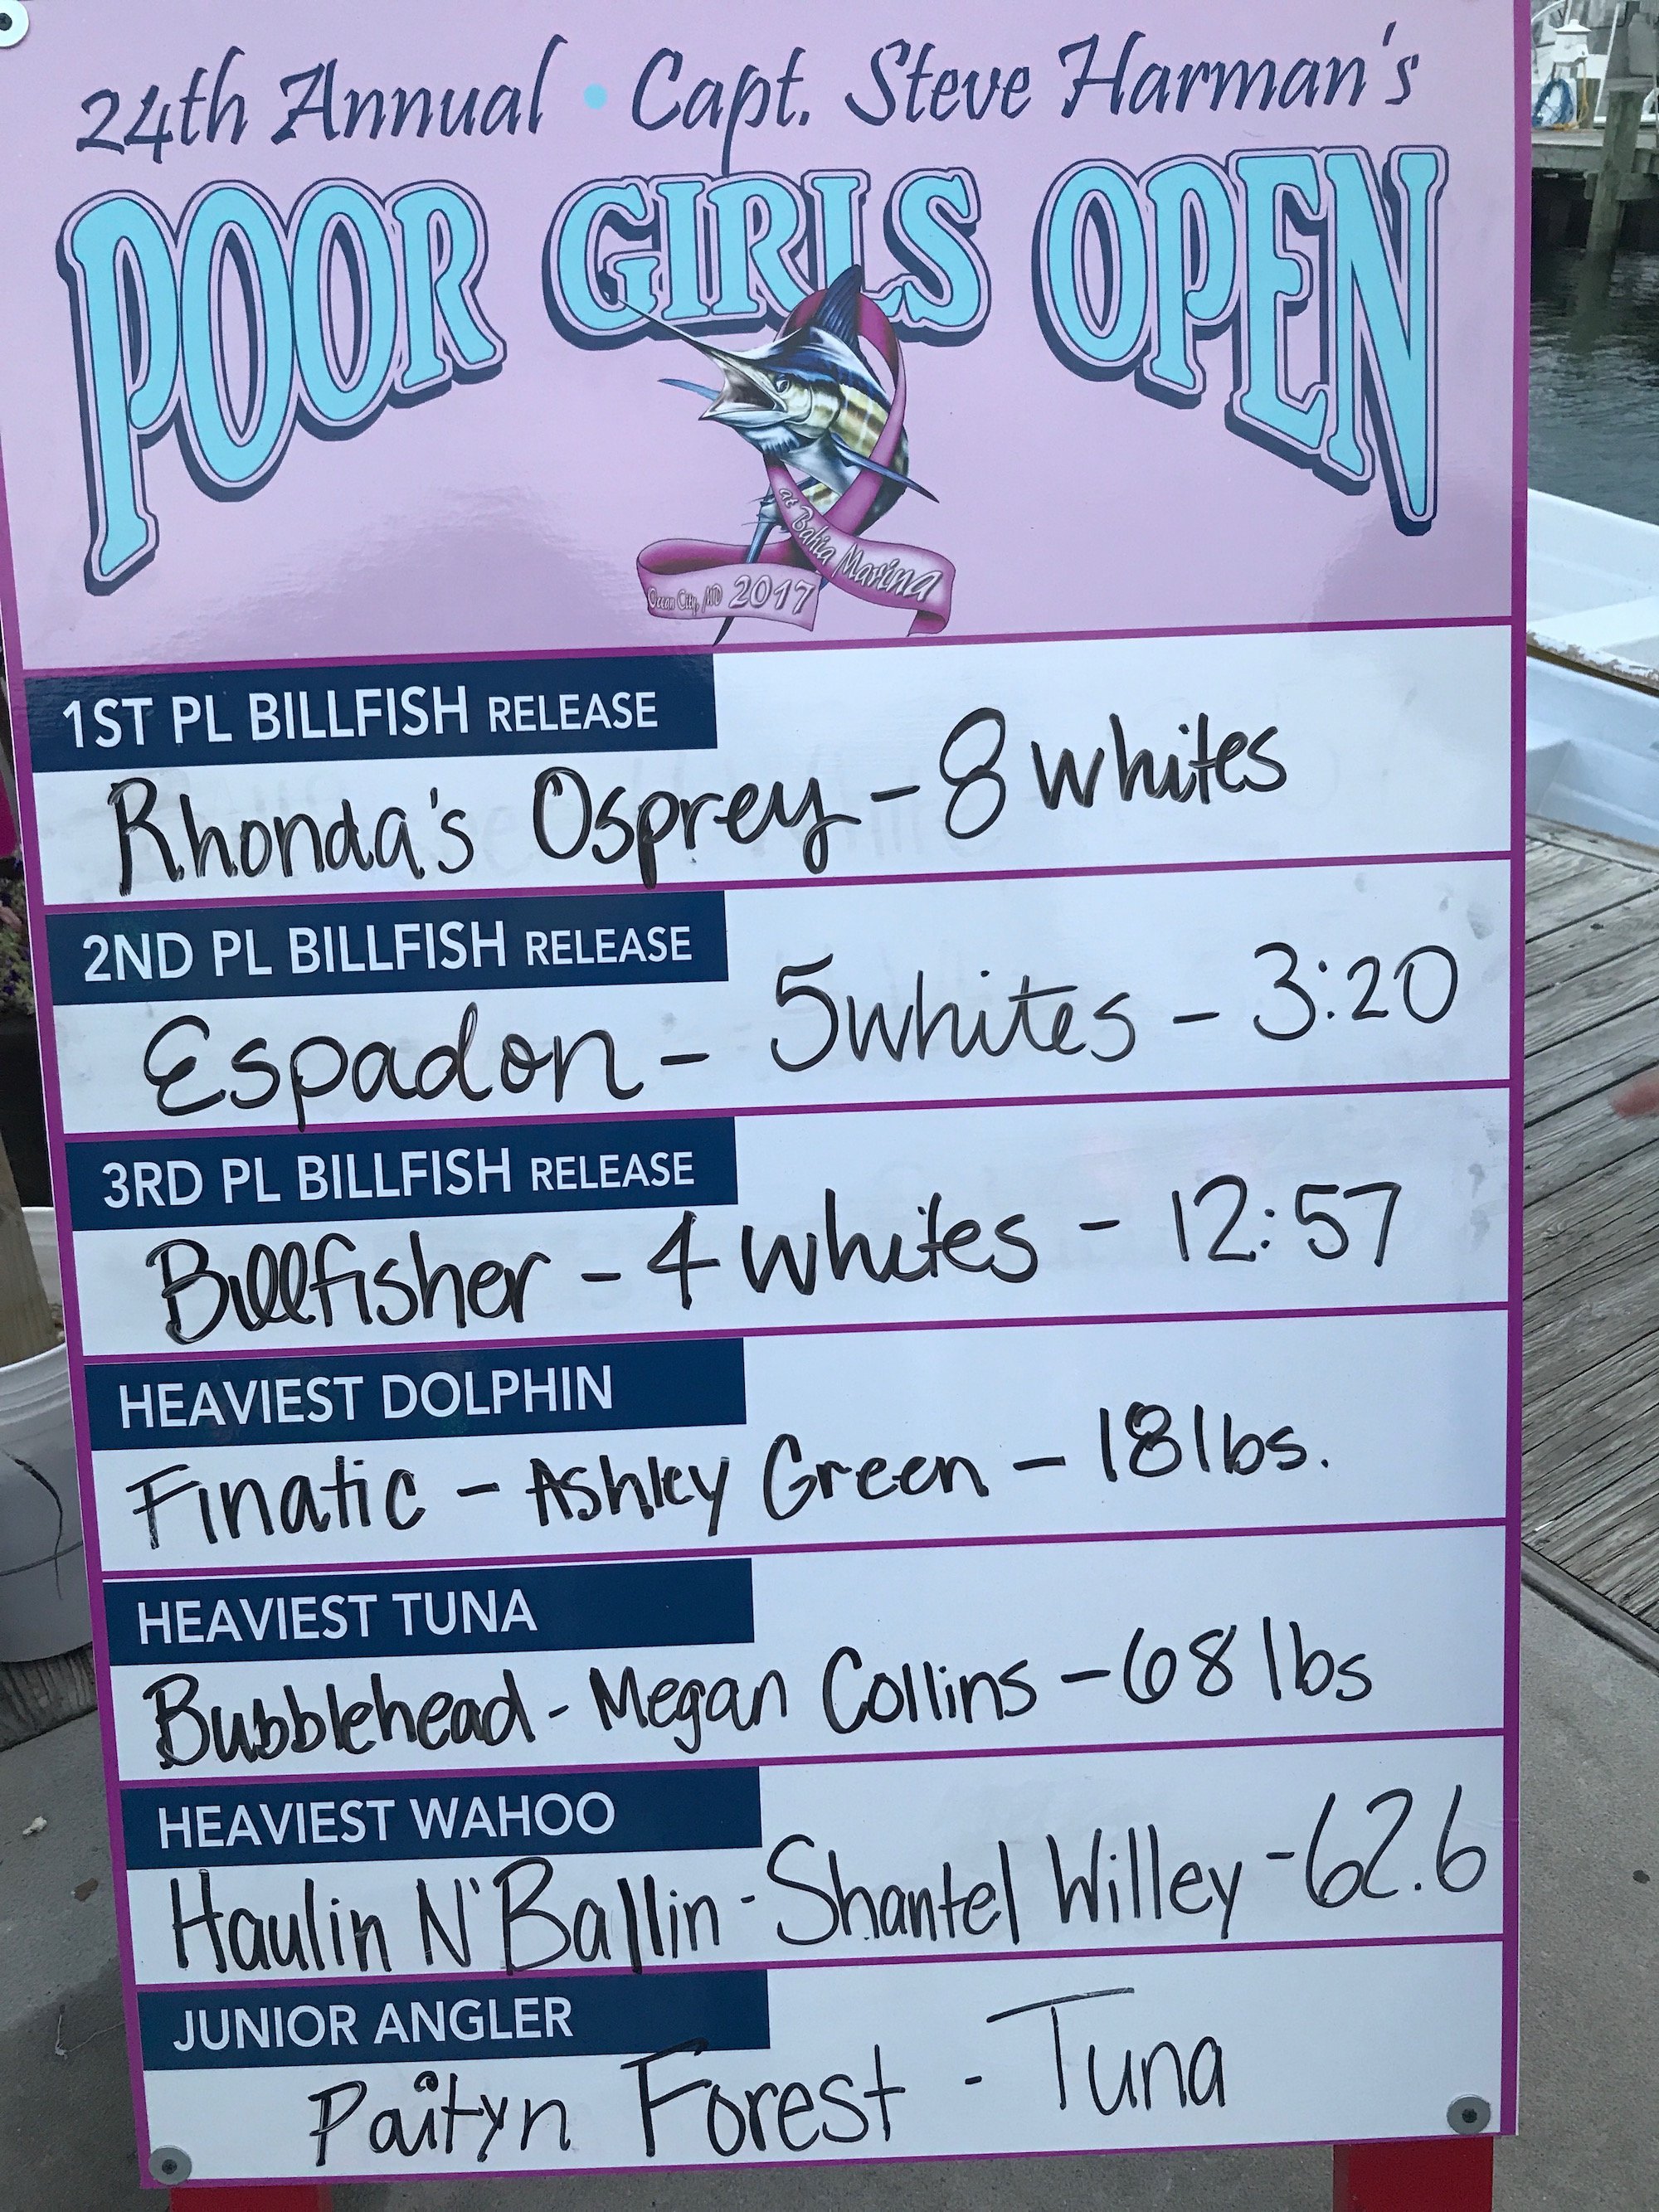 24th Annual • Capt. Steve Harman's
POOR GIRLS OPEN
at Bahia Marina
Ocean City, MD 2017
1ST PL BILLFISH RELEASE
Rhonda's Osprey - 8 whites
2ND PL BILLFISH RELEASE
Espadon - 5 whites - 3:20
3RD PL BILLFISH RELEASE
Billfisher - 4 whites - 12:57
HEAVIEST DOLPHIN
Finatic - Ashley Green - 18 lbs.
HEAVIEST TUNA
Bubblehead - Megan Collins - 68 lbs
HEAVIEST WAHOO
Haulin N' Ballin - Shantel Willey - 62.6
JUNIOR ANGLER
Paityn Forest - Tuna